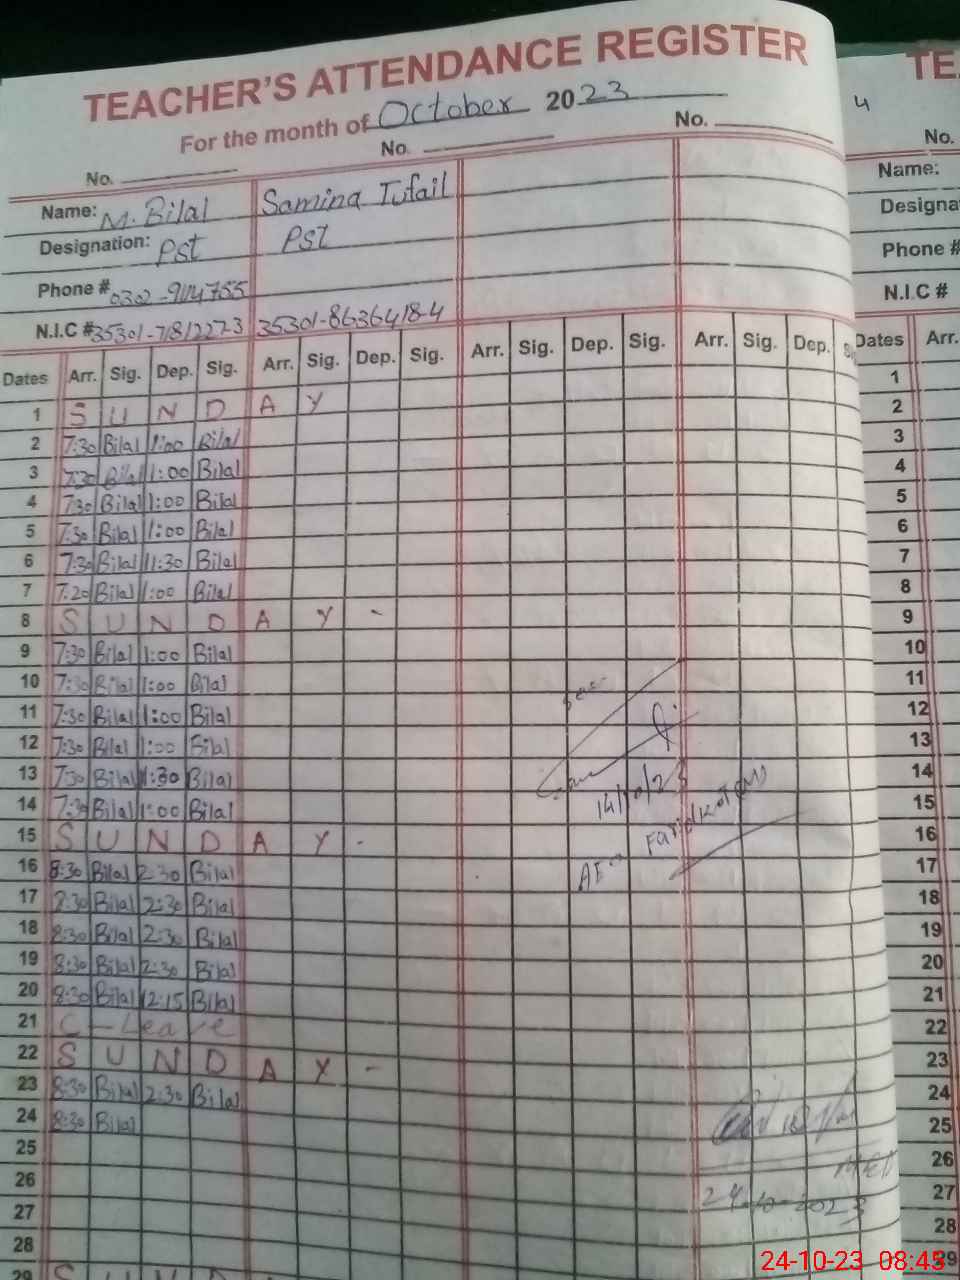 TEACHER'S ATTENDANCE REGISTER
For the month of October 2023
No. No. No.
Name: M. Bilal Samina Tufail
Designation: Pst Pst
Phone #
N.I.C # 35301-8636418-4
Dates Arr. Sig. Dep. Sig. Arr. Sig. Dep. Sig. Arr. Sig. Dep. Sig. Arr. Sig. Dep.
1 S U N D A Y
2 7:30 Bilal 1:00 Bilal
3 7:30 Bilal 1:00 Bilal
4 7:30 Bilal 1:00 Bilal
5 7:30 Bilal 1:00 Bilal
6 7:30 Bilal 11:30 Bilal
7 7:20 Bilal 1:00 Bilal
8 S U N D A Y -
9 7:30 Bilal 1:00 Bilal
10 7:30 Bilal 1:00 Bilal
11 7:30 Bilal 1:00 Bilal
12 7:30 Bilal 1:00 Bilal
13 7:30 Bilal Bilal
14 7:30 Bilal 1:00 Bilal
15 S U N D A Y -
16 8:30 Bilal 2:30 Bilal
17 8:30 Bilal 2:30 Bilal
18 8:30 Bilal 2:30 Bilal
19 8:30 Bilal 2:30 Bilal
20 8:30 Bilal 12:15 Bilal
21 C-Leave
22 S U N D A Y -
23 8:30 Bilal 2:30 Bilal
24 8:30 Bilal
25
26
27
28
29 S U N D A
14/10/23
24-10-2023
TE
4
No.
Name:
Designa
Phone #
N.I.C #
Dates Arr.
1
2
3
4
5
6
7
8
9
10
11
12
13
14
15
16
17
18
19
20
21
22
23
24
25
26
27
28
29
24-10-23 08:45